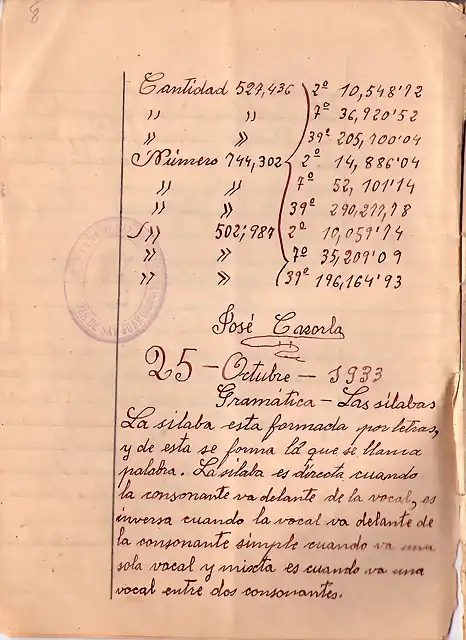 8
Cantidad 527,436 2º 10,548'72
" " 7º 36,920'52
" " 39º 205,700'04
Número 744,302 2º 14,886'04
" " 7º 52,101'14
" " 39º 290,277,78
" 502,987 2º 10,059'74
" " 7º 35,209'09
" " 39º 196,164'93
José Cazorla
25 - Octubre - 1933
Gramática - Las sílabas
La sílaba esta formada por letras,
y de esta se forma la que se llama
palabra. La sílaba es directa cuando
la consonante va delante de la vocal, es
inversa cuando la vocal va delante de
la consonante simple cuando va una
sola vocal y mixta es cuando va una
vocal entre dos consonantes.
DE SAN JUAN